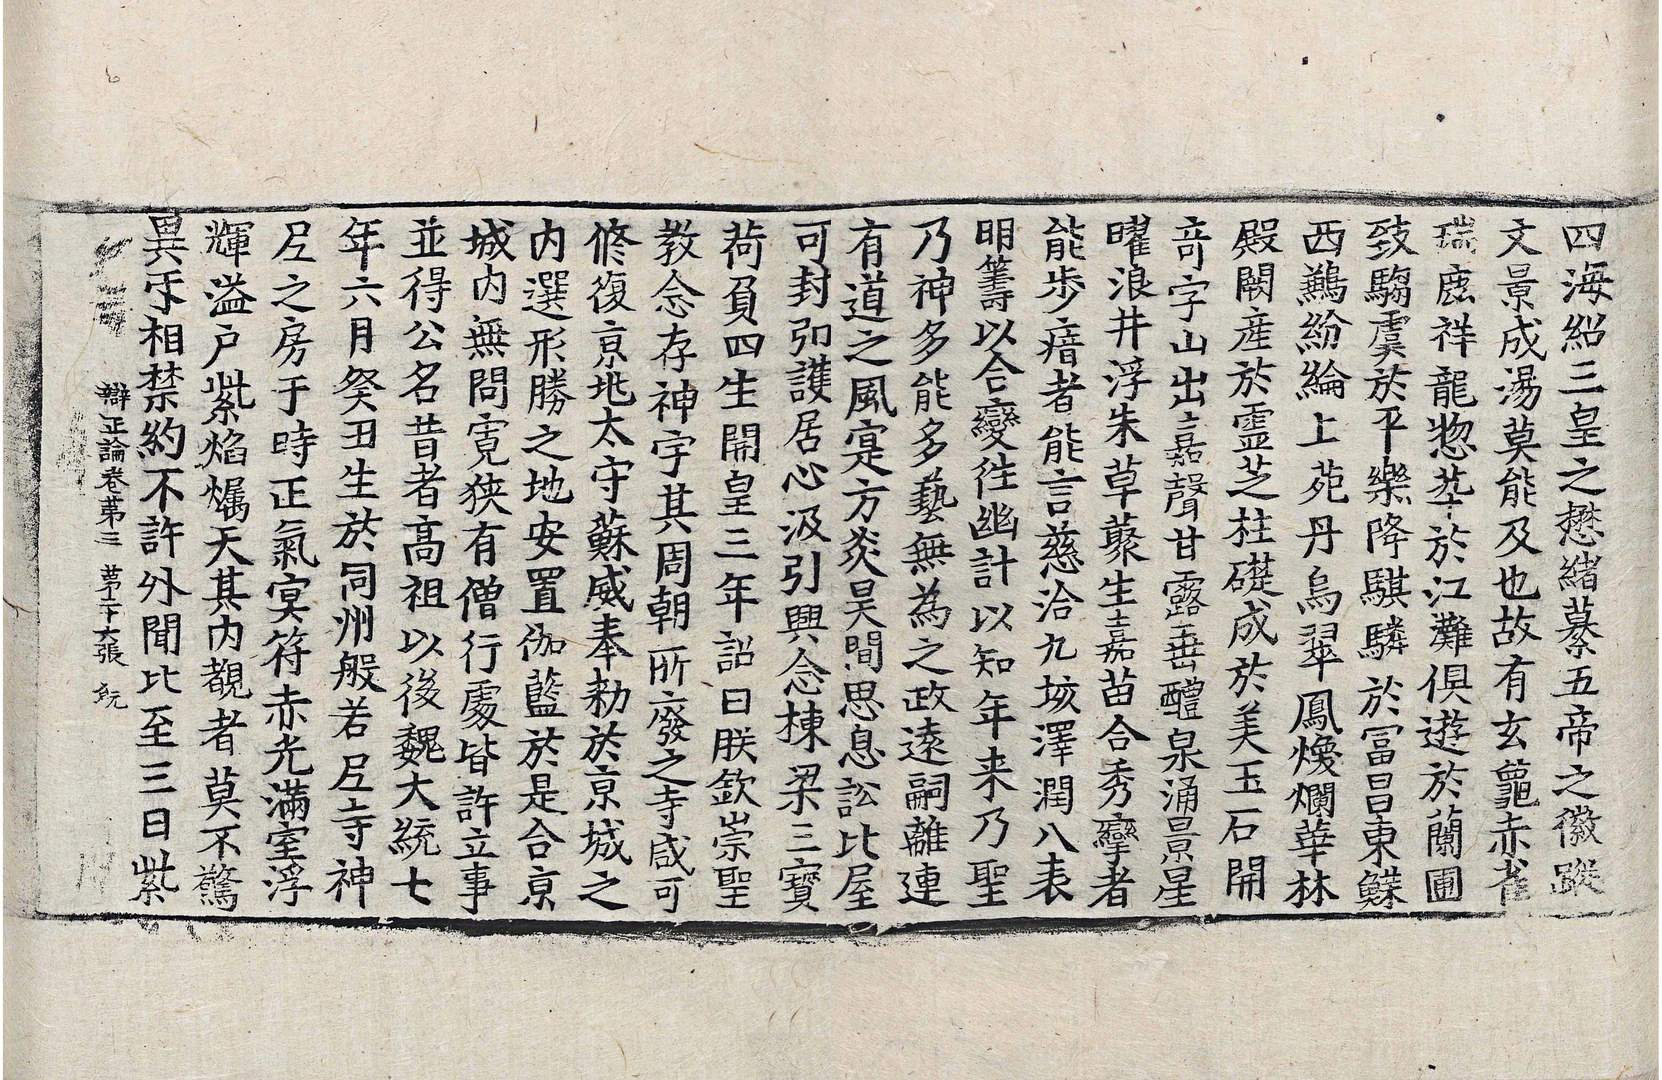 四海紹三皇之懋緒纂五帝之徽蹤
文景成湯莫能及也故有玄龜赤雀
瑞鹿祥龍惣萃於江灘俱遊於蘭圃
致騶虞於平樂降騏驎於冨昌東鰈
西鶼紛綸上苑丹烏翠鳳煥爛華林
殿闕産於霊芝柱礎成於美玉石開
竒字山出嘉聲甘露垂醴泉涌景星
曜浪井浮朱草藂生嘉苗合秀攣者
能步瘖者能言慈洽九垓澤潤八表
明籌以合變徃幽計以知年来乃聖
乃神多能多藝無為之政遠嗣離連
有道之風寔方炎昊間思息訟比屋
可封弘護居心汲引興念棟梁三寶
荷負四生開皇三年詔曰朕欽崇聖
教念存神宇其周朝所廢之寺咸可
修復京兆太守蘇威奉勑於京城之
内選形勝之地安置伽藍於是合京
城内無問寛狭有僧行處皆許立事
並得公名昔者髙祖以後魏大統七
年六月癸丑生於同州般若尼寺神
尼之房于時正氣㝠符赤光滿室浮
輝溢户紫焰爥天其内覩者莫不驚
異手相禁約不許外聞比至三日紫
辯正論卷苐三 苐二十六張 㧕